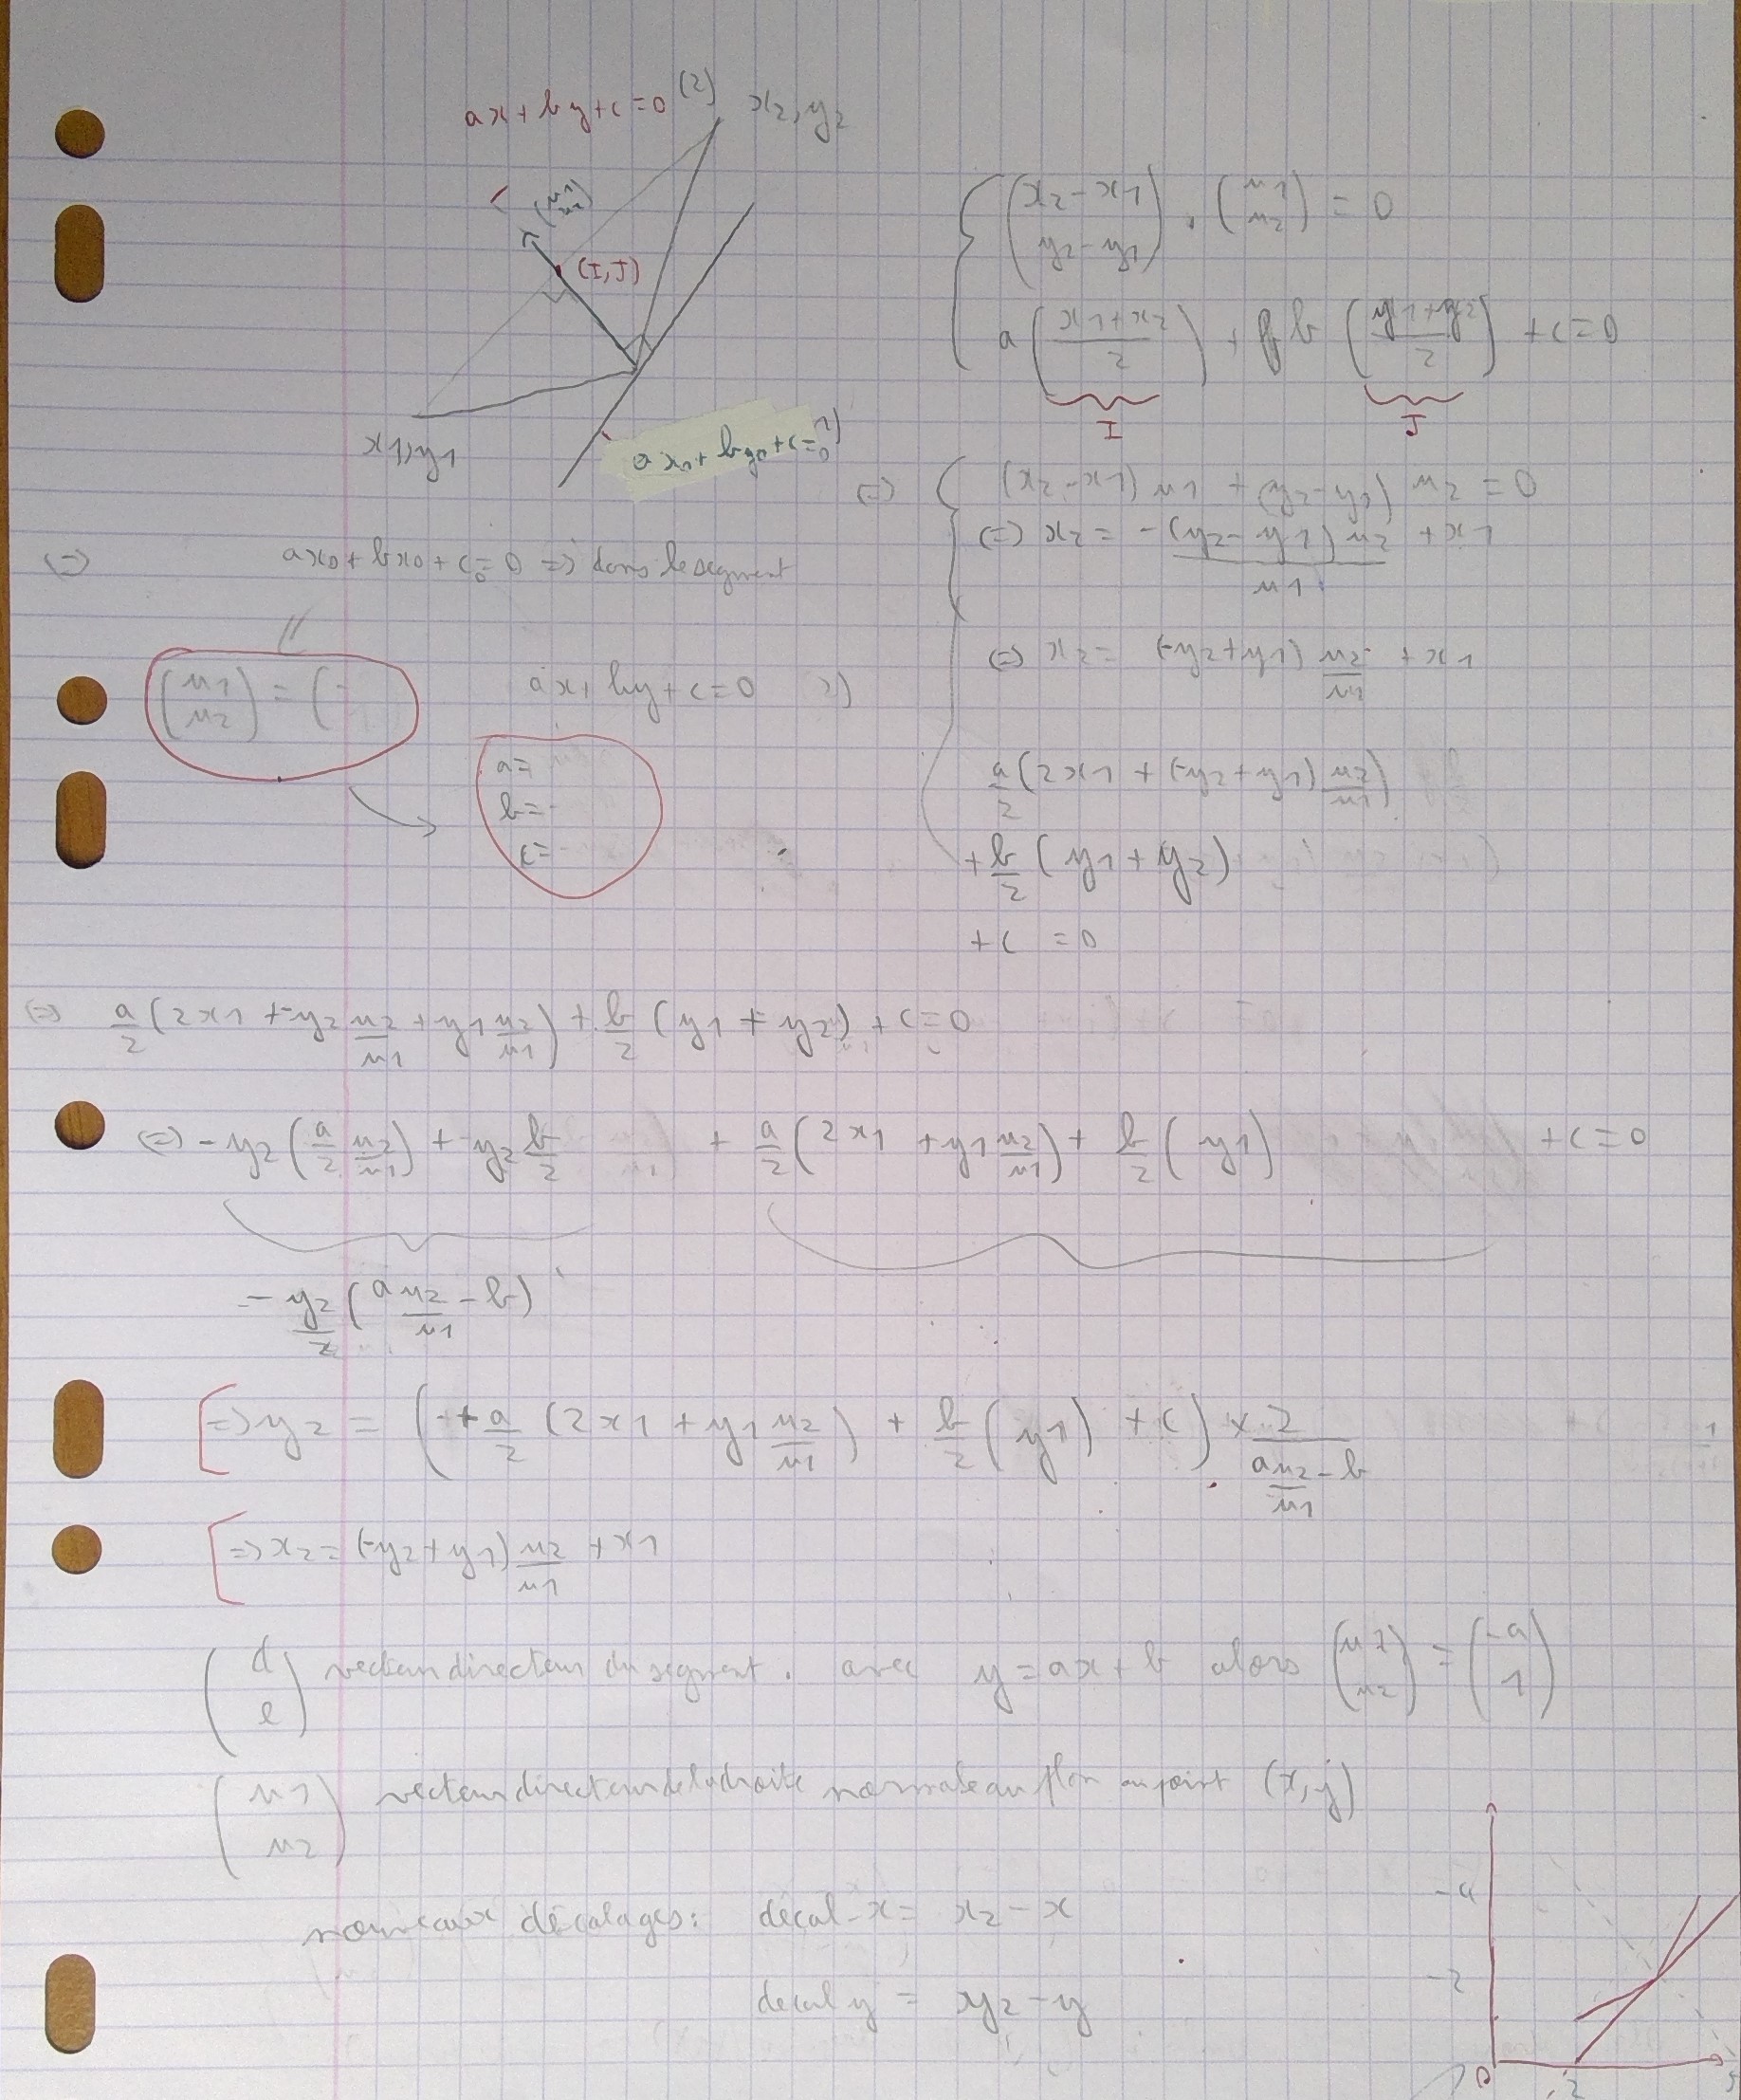 ax + by + c = 0 (2)
x2, y2
(u1 u2)
(I, J)
x1, y1
ax0 + by0 + c = 0
(x2 - x1 / y2 - y1) . (u1 / u2) = 0
a ((x1 + x2)/2) + b ((y1 + y2)/2) + c = 0
I J
<=> (x2 - x1) u1 + (y2 - y1) u2 = 0
(=) x2 = -(y2 - y1) u2 / u1 + x1
(=) x2 = (-y2 + y1) u2/u1 + x1
a/2 (2x1 + (-y2 + y1) u2/u1)
+ b/2 (y1 + y2)
+ c = 0
(=) ax0 + bx0 + c = 0 => dans le segment
(u1 / u2) = (-
ax + by + c = 0
a =
b = -
c = -
(=) a/2 (2x1 + -y2 u2/u1 + y1 u2/u1) + b/2 (y1 + y2) + c = 0
(=) -y2 (a/2 u2/u1) + y2 b/2 + a/2 (2x1 + y1 u2/u1) + b/2 (y1) + c = 0
= -y2/2 (a u2/u1 - b)
=> y2 = (+ a/2 (2x1 + y1 u2/u1) + b/2 (y1) + c) × 2/(a u2/u1 - b)
=> x2 = (-y2 + y1) u2/u1 + x1
(d / e) vecteur directeur du segment. avec y = ax + b alors (u1 / u2) = (-a / 1)
(u1 / u2) vecteur directeur de la droite normale au plan au point (x, y)
nouveaux décalages: décal-x = x2 - x
decal y = y2 - y
-4
-2
0
2